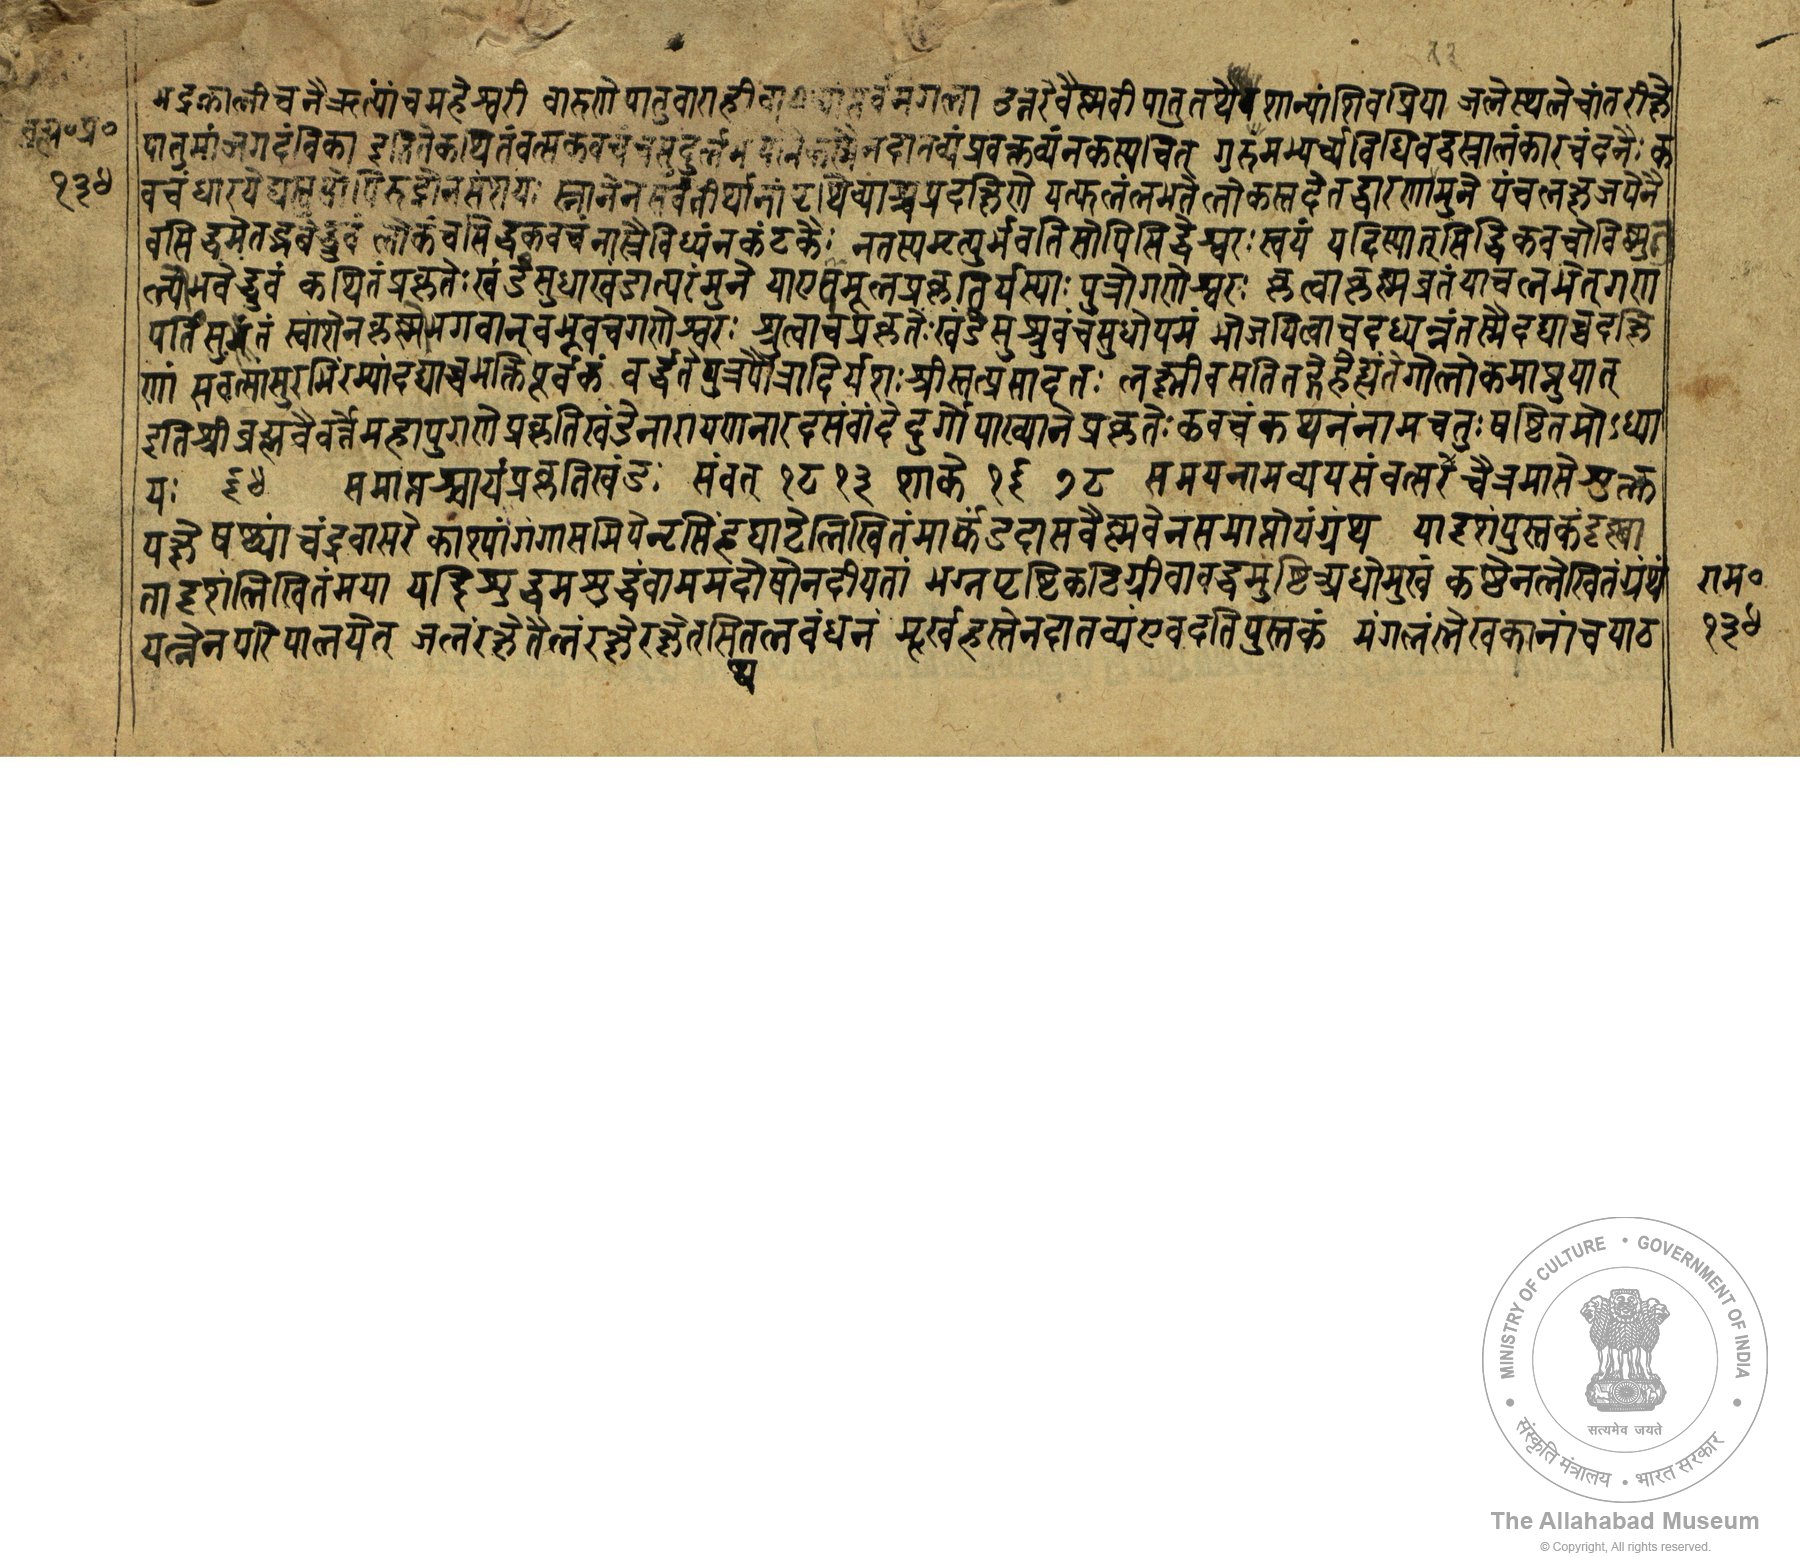 भद्रकालीचनैऋत्यांचमहेश्वरी वारुणेपातुवाराही सर्वमंगला उत्तरेवैष्णवीपातुतथैवैशान्यांशिवप्रिया जलेस्थलेचांतरीक्षे
ब्रह्म॰प्र॰
पातुमांजगदंविका इतितेकथितंवत्सकवचंचसुदुर्लभं कस्मैनदातव्यंप्रवक्तव्यंनकस्यचित् गुरुमभ्यर्च्यविधिवद्वस्त्रालंकारचंदनैः क
१३४
वचंधारयेद्यस्तु संशयः स्नानेनसर्वतीर्थानांपृथिव्याश्चप्रदक्षिणे यत्फलंलभतेलोकस्तदेतद्धारणामुने पंचलक्षजपेनै
वसिद्धमेतद्भवेद्ध्रुवं लोकंचसिद्धकवचंनास्त्रैविध्यंनकंटकैः नतस्यमृत्युर्भवतिसोपिसिद्धेश्वरःस्वयं यदिस्यात्सिद्धिकवचोविष्णुतु
ल्योभवेद्ध्रुवं कथितंप्रकृतेःखंडंसुधाखंडात्परंमुने याएवमूलप्रकृतिर्यस्याः पुत्रोगणेश्वरः कृत्वाकृष्णव्रतंयाचलभेत्गणा
पतिंसुतं स्वांशेनकृष्णोभगवान्वभूवचगणेश्वरः श्रुत्वाचप्रकृतेःखंडंसुश्रुवंचसुधोपमं भोजयित्वाचदध्यन्नंतस्मैदद्याच्चदक्षि
णां सवत्सांसुरभिंरम्यांदद्याच्चभक्तिपूर्वकं वर्द्धतेपुत्रपौत्रादिर्यशःश्रीस्तत्प्रसादतः लक्ष्मीवसतितद्गेहेह्यंतेगोलोकमाप्नुयात्
इतिश्रीव्रह्मवैवर्त्तेमहापुराणेप्रकृतिखंडेनारायणनारदसंवांदेदुर्गोपाख्यानेप्रकृतेःकवचंकथनंनामचतुःषष्टितमोऽध्या
यः ६४ समाप्तश्चायंप्रकृतिखंडः संवत् १८१३ शाके १६७८ समयनामव्ययसंवत्सरेचैत्रमासेशुक्ल
पक्षेषष्ठ्यांचंद्रवासरे काश्यांगंगासमिपेनृसिंहघाटेलिखितंमार्कंडदासवैष्णवेनसमाप्तोयंग्रंथ यादृशंपुस्तकंदृष्ट्वा
तादृशंलिखितंमया यद्दिशुद्धमशुद्धंवाममदोषोनदीयतां भग्नपृष्टिकटिग्रीवावद्धमुष्टिअधोमुखं कष्टेनलेखितंग्रंथं
राम॰
यत्नेनपरिपालयेत् जलंरक्षेतैलंरक्षेरक्षेतसितलवंधनं मूर्खहस्तेनदातव्यंएवदतिपुस्तकं मंगलंलेखकानांचपाठ
१३४
थ
MINISTRY OF CULTURE • GOVERNMENT OF INDIA
सत्यमेव जयते
संस्कृति मंत्रालय • भारत सरकार
The Allahabad Museum
© Copyright, All rights reserved.